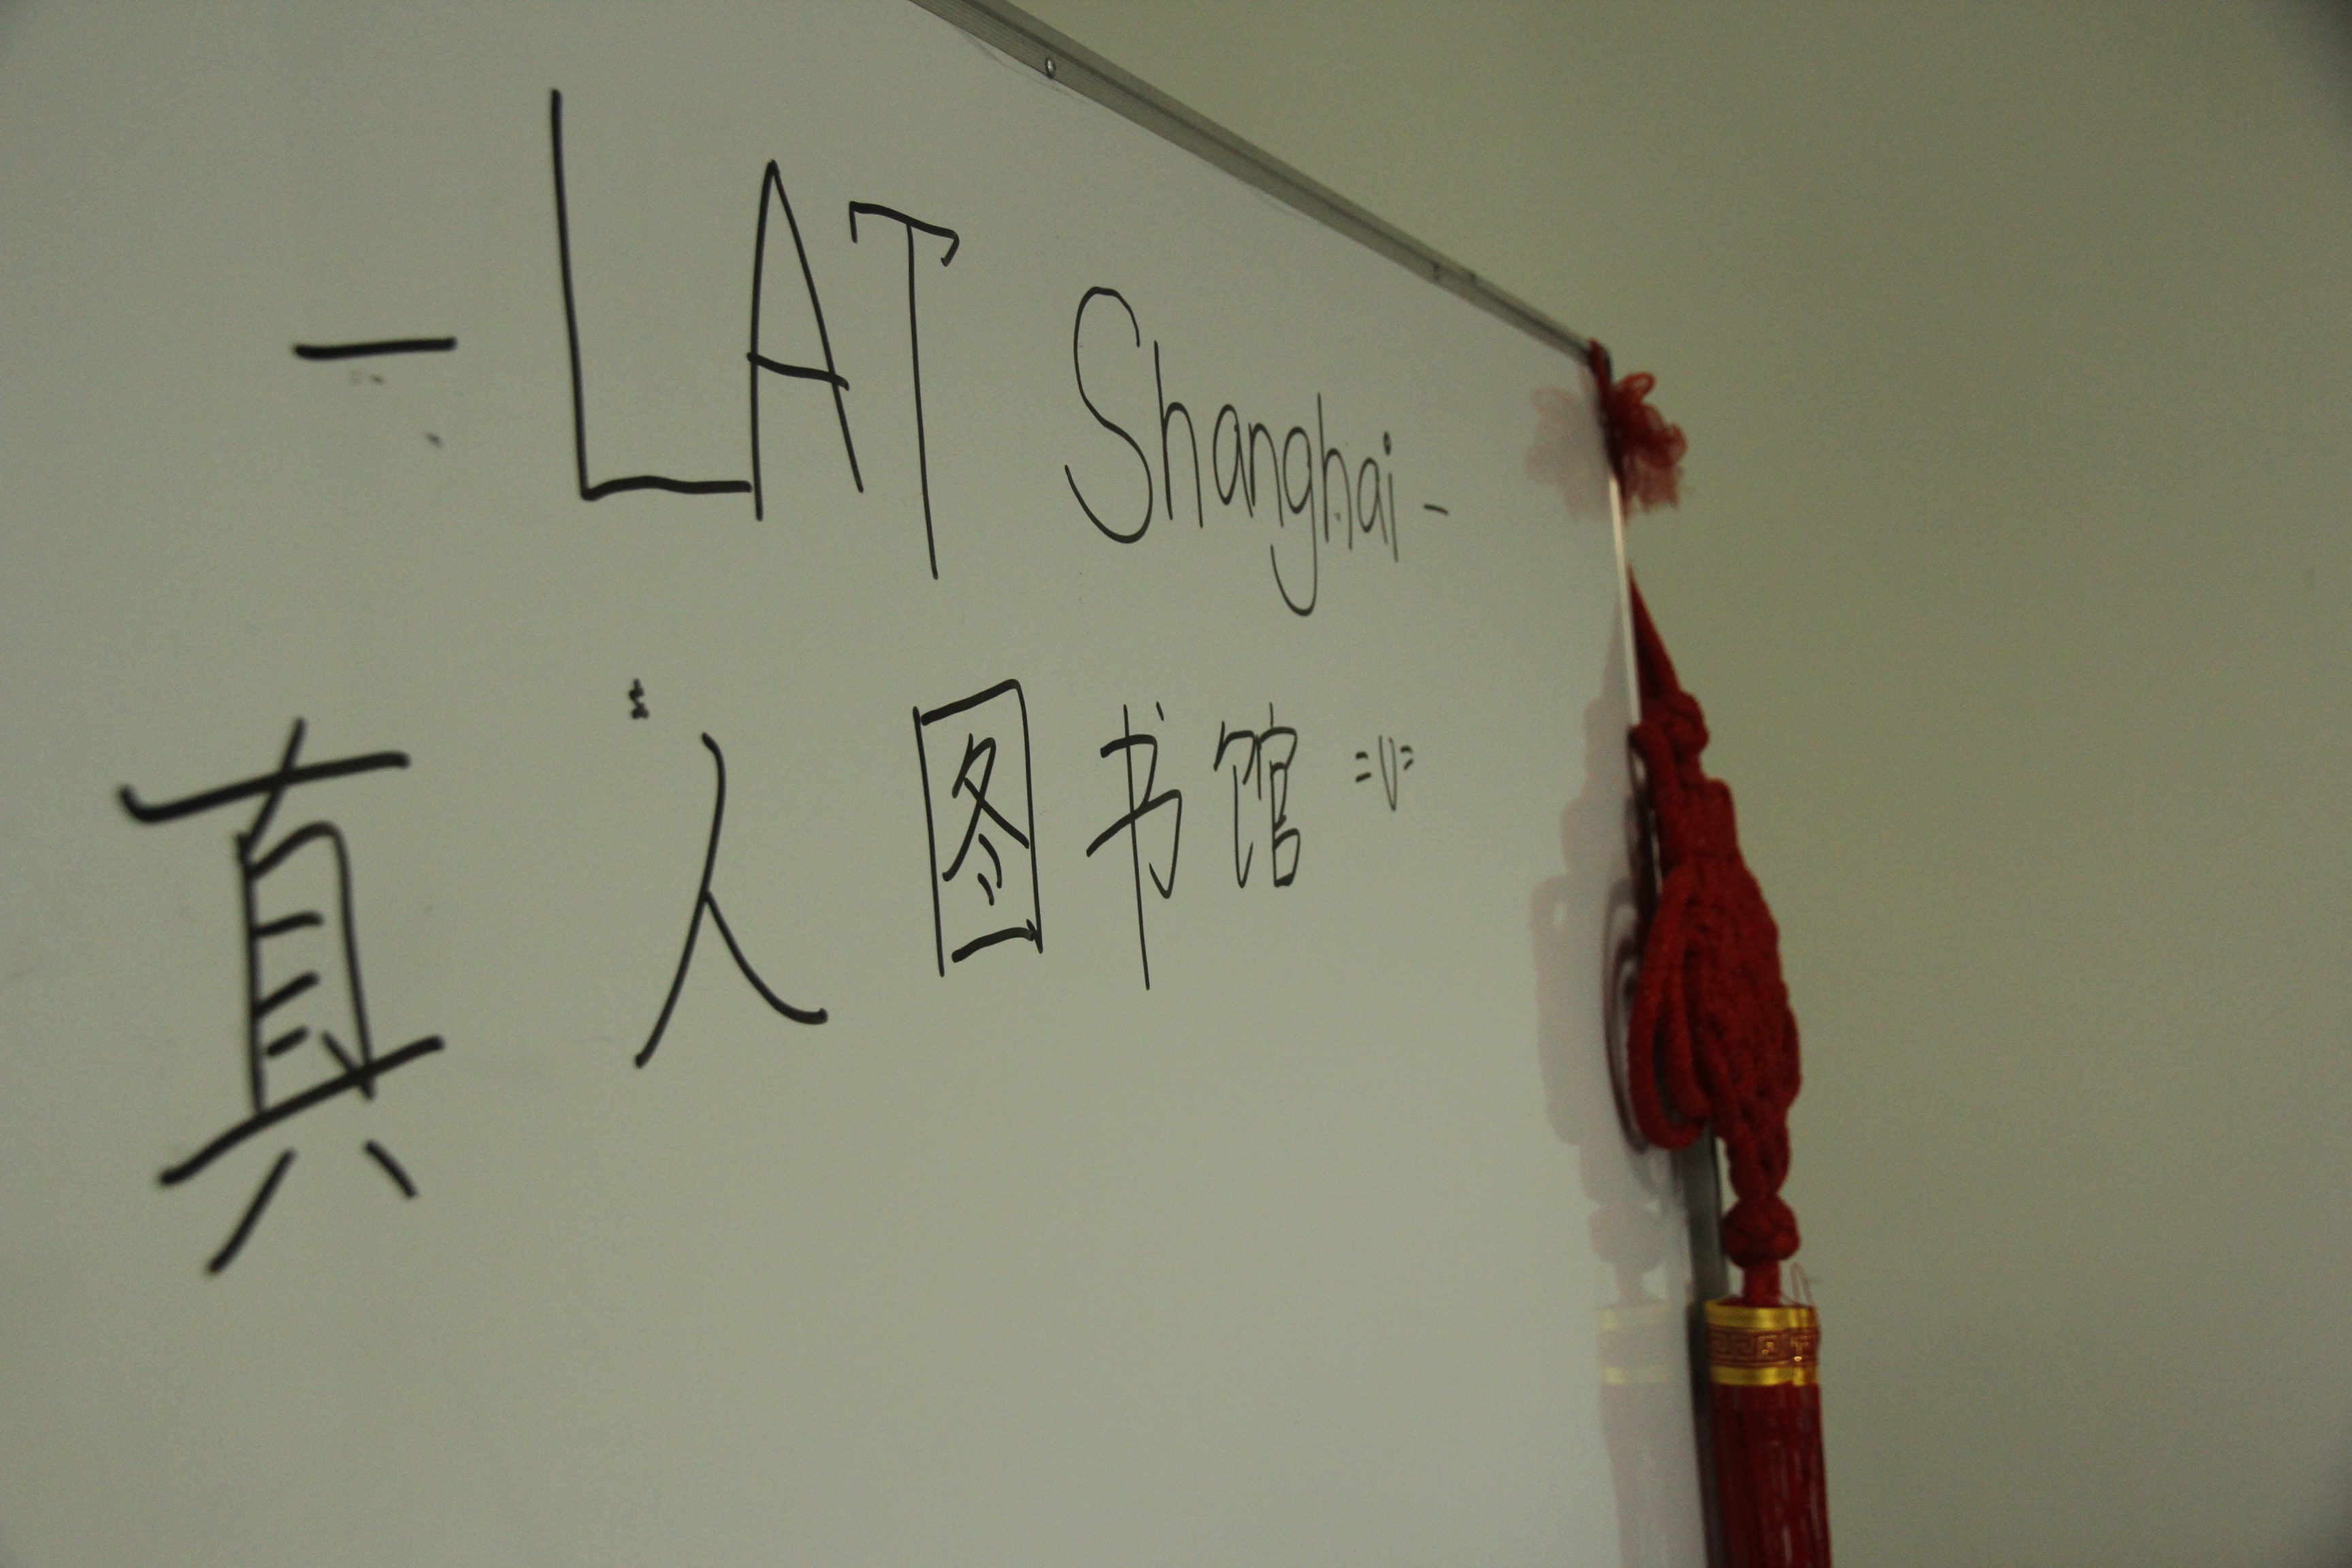 - LAT Shanghai -
真人图书馆 =V=